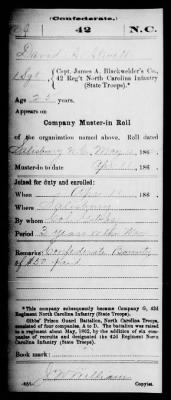 (Confederate.)
42 N.C.
David
1 Sgt
Capt. James A. Blackwelder's Co.,
42 Reg't North Carolina Infantry
(State Troops).*
Age 25 years.
Appears on
Company Muster-in Roll
of the organization named above. Roll dated
Salisbury N.C., May , 186
Muster-in to date , 186
Joined for duty and enrolled:
When , 186
Where Salisbury
By whom
Period 3 years or the War
Remarks: Confederate Bounty
of $50 paid
*This company subsequently became Company G, 42d
Regiment North Carolina Infantry (State Troops).
Gibbs' Prison Guard Battalion, North Carolina,
consisted of four companies, A to D. The battalion was
raised to a regiment about May, 1862, by the addition of six com-
panies of recruits and designated the 42d Regiment
North Carolina Infantry (State Troops).
Book mark:
Copyist.